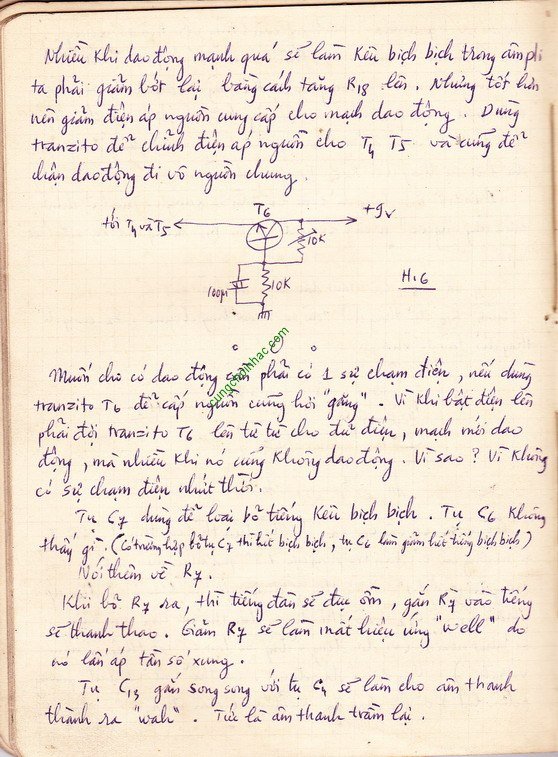 Nhiều khi dao động mạnh quá sẽ làm kêu bịch bịch trong ampli
ta phải giảm bớt lại bằng cách tăng R18 lên. Nhưng tốt hơn
nên giảm điện áp nguồn cung cấp cho mạch dao động. Dùng
tranzito để chỉnh điện áp nguồn cho T4 T5 và cũng để
chặn dao động đi vô nguồn chung.
T6
tới T4 và T5
+9v
10K
100µ
10K
H.6
cungcamnhac.com
Muốn cho có dao động cần phải có 1 sự chạm điện, nếu dùng
tranzito T6 để cấp nguồn cũng hơi "găng". Vì khi bật điện lên
phải đợi tranzito T6 lên từ từ cho đủ điện, mạch mới dao
động, mà nhiều khi nó cũng không dao động. Vì sao? Vì không
có sự chạm điện nhút thời.
Tụ C7 dùng để loại bỏ tiếng kêu bịch bịch. Tụ C6 không
thấy gì. (Có trường hợp bỏ tụ C7 thì hết bịch bịch, tụ C6 làm giảm bớt tiếng bịch bịch)
Nói thêm về R7.
Khi bỏ R7 ra, thì tiếng đàn sẽ đục ồm, gắn R7 vào tiếng
sẽ thanh thao. Giảm R7 sẽ làm mất hiệu ứng "well" do
nó lấn áp tần số xung.
Tụ C13 gắn song song với tụ C4 sẽ làm cho âm thanh
thành ra "wah". Tức là âm thanh trầm lại.